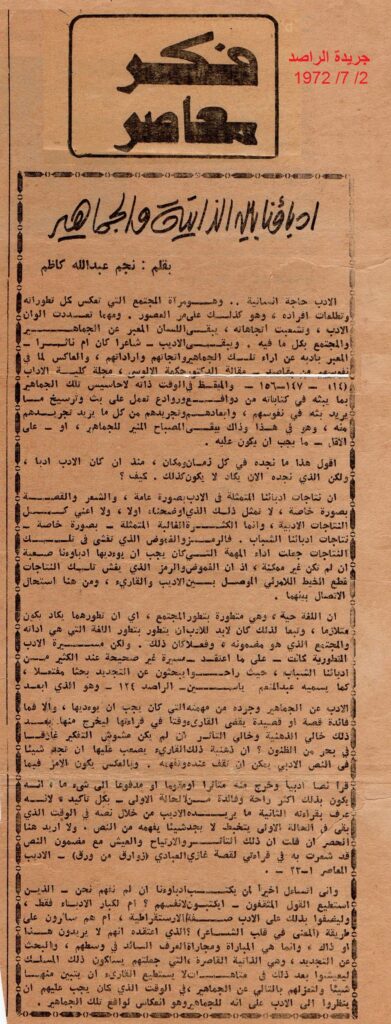 فكر
معاصر
جريدة الراصد
1972 /7 /2
ادباؤنا بين الذاتية والجماهير
بقلم : نجم عبدالله كاظم
الادب حاجة انسانية .. وهو مرآة المجتمع التي تعكس كل تطوراته
وتطلعات افراده ، وهو كذلك على مر العصور . ومهما تعددت الوان
الادب ، وتشعبت اتجاهاته ، يبقى اللسان المعبر عن الجماهير
والمجتمع بكل ما فيه . ويبقى الاديب ـ شاعرا كان ام ناثرا ـ
المعبر بادبه عن اراء تلك الجماهير واتجاهاتها واراداتها ، والعاكس لما في
مقالة الدكتور حكمة الالوسي ، مجلة كلية الاداب
(١٤ ـ ١٤٧ ـ ١٥٦ ـ والمنبه في الوقت ذاته لاحاسيس تلك الجماهير
بما يبثه في كتاباته من دوافع وروادع تعمل على بث وترسيخ ما
يريد بثه في نفوسهم ، وابعادهم وتجريدهم من كل ما يريد تجريدهم
منه ، وهو في هذا وذاك يبقى المصباح المنير للجماهير ، او ـ على
الاقل ـ ما يجب ان يكون عليه .
اقول هذا ما نجده في كل زمان ومكان ، منذ ان كان الادب ادبا ،
ولكن الذي نجده الان يكاد لا يكون كذلك . كيف ؟
ان نتاجات ادبائنا المتمثلة في الادب بصورة عامة ، والشعر والقصة
بصورة خاصة ، لا تمثل ذلك الذي اوضحناه اولا ، ولا اعني كل
النتاجات الادبية ، وانما الكثرة الغالبة المتمثلة ـ بصورة خاصة ـ
نتاجات ادبائنا الشباب . فالرمز والغموض الذي تفشى في تلك
النتاجات جعلت اداء المهمة التي كان يجب ان يوديها ادباؤنا صعبة
ان لم تكن غير ممكنة ، اذ ان الغموض والرمز الذي يفش تلك النتاجات
قطع الخيط اللامرئي الموصل بين الاديب والقاريء ، ومن هنا استحال
الاتصال بينهما .
ان اللغة حية ، وهي متطورة بتطور المجتمع ، اي ان تطورهما يكاد يكون
متلازما ، وتبعا لذلك كان لابد للادب ان يتطور بتطور اللغة التي هي اداته
والمجتمع الذي هو مضمونه وفعلا كان ذلك . ولكن مسيرة الادب
التطورية كانت ـ على ما اعتقد ـ مسيرة غير صحيحة عند الكثير من
ادبائنا الشباب ، حيث راحوا يبحثون عن التجديد بحثا مفتعلا ،
كما يسميه عبدالمنعم ياسين ـ الراصد ١٢٤ ـ وهو الذي ابعد
الادب عن الجماهير وجرده من مهمته التي كان يجب ان يوديها ، والا فما
فائدة قصة او قصيدة يقضي القاريء وقتا في قراءتها ليخرج منها بعد
ذلك خالي الذهنية وخالي التأثر ان لم يكن مشوش التفكير غارقا
في بحر من الظنون ؟ ان ذهنية ذلك القاريء يصعب عليها ان تجد شيئا
في النص الادبي يمكن ان تقف عنده وتفهمه . وبالعكس يكون الامر فيما
قرأ نصا ادبيا وخرج منه متأثرا او مقوما او مدفوعا الى شيء ما ، انه
يكون بذلك اكثر راحة وفائدة من الحالة الاولى ـ بكل تأكيد ـ لانه
عرف بقراءته الثانية ما يريده الاديب من خلال نصه في الوقت الذي
بقى في الحالة الاولى يتخبط لا يجد شيئا يفهمه من النص . ولا اريد هنا
الحصر ان قلت ان ذلك التأثر والارتياح والعيش مع مضمون النص
قد شعرت به في قراءتي لقصة غازي العبادي (زوارق من ورق) ـ الاديب
المعاصر ١ـ٢٣ ـ .
واني اتساءل اخيرا لمن يكتب ادباؤنا ان لم نفهم نحن ـ الذين
نستطيع القول المثقفون ـ ايكتبون لانفسهم ؟ ام لكبار الادباء فقط ،
وليضفوا بذلك على الادب صفة الارستقراطية ، ام هم سائرون على
طريقة (المعنى في قلب الشاعر) ؟ الذي اعتقده انهم لا يريدون هذا
او ذاك ، وانما هي المباراة ومجاراة العرف السائد في وسطهم ، والبحث
عن التجديد ، وهي الذاتية القاصرة ، التي جعلتهم يسلكون ذلك المسلك
ليعيشوا بعد ذلك في متاهات لا يستطيع القاريء ان يتبين منها
شيئا ولتعزلهم بالتالي عن الجماهير ، في الوقت الذي كان يجب عليهم ان
ينظروا الى الادب على انه للجماهير وهو انعكاس لواقع تلك الجماهير .